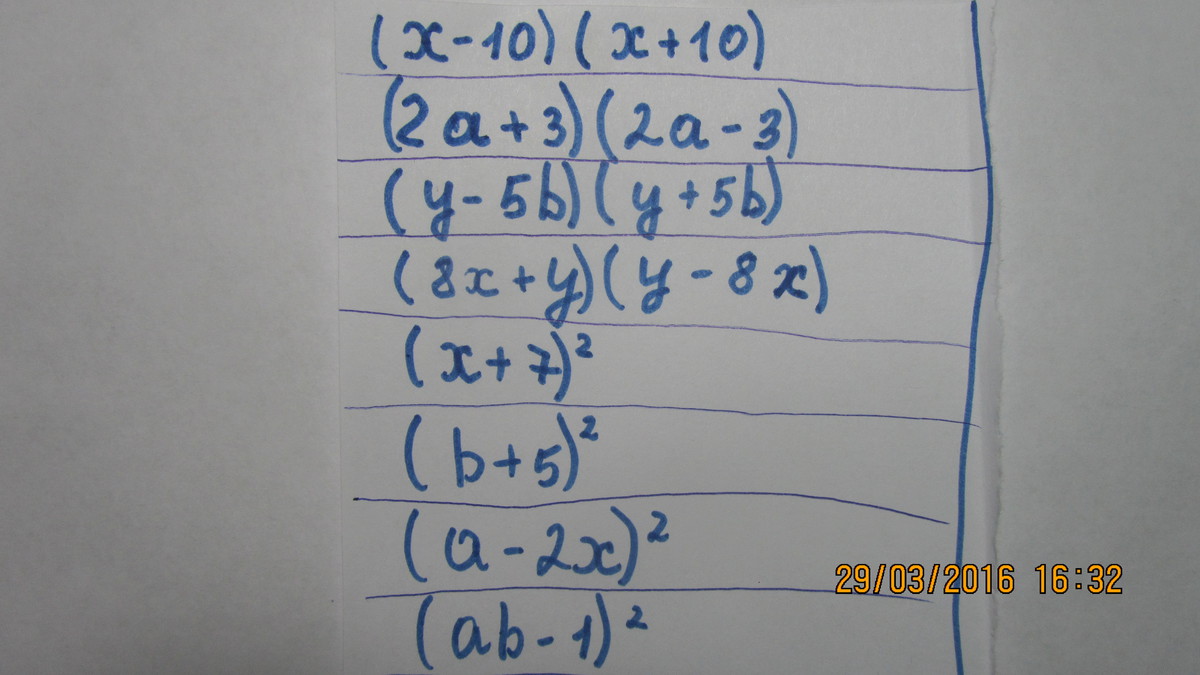 (x-10)(x+10)
(2a+3)(2a-3)
(y-5b)(y+5b)
(8x+y)(y-8x)
(x+7)²
(b+5)²
(a-2x)²
29/03/2016 16:32
(ab-1)²